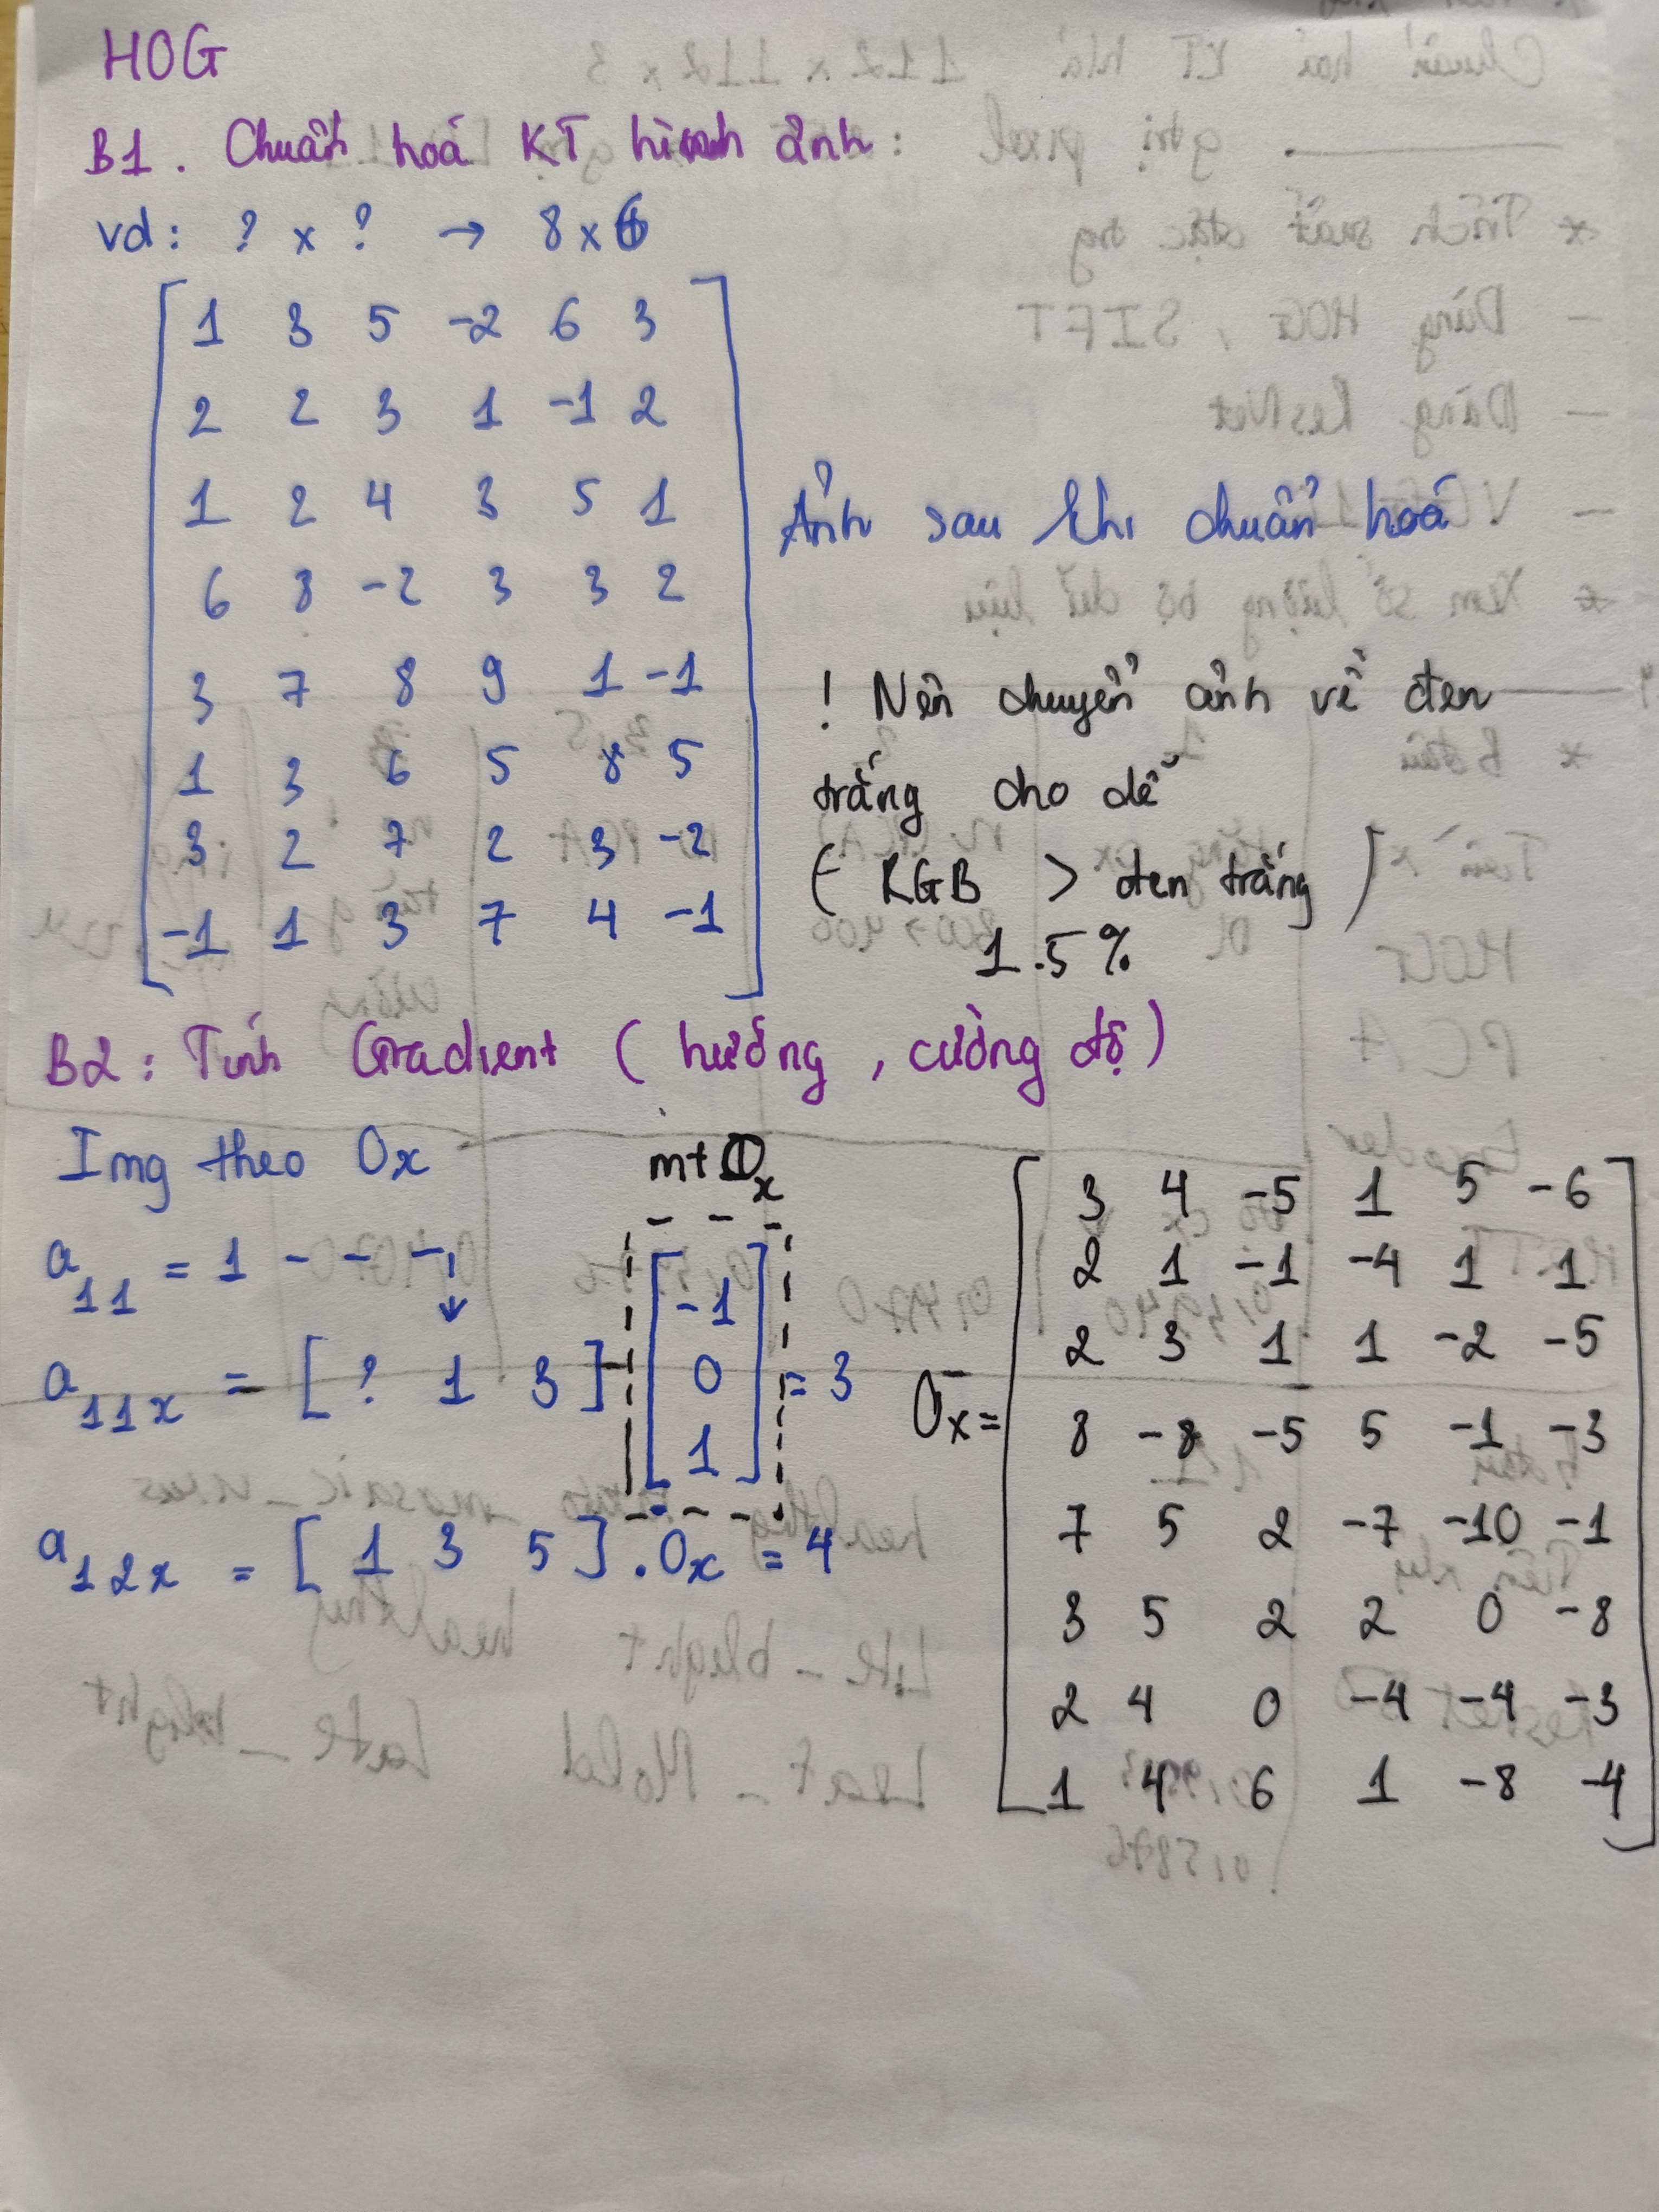 HOG
B1. Chuẩn hoá KT hình ảnh:
vd: ? x ? → 8 x 6
1 3 5 -2 6 3
2 2 3 1 -1 2
1 2 4 3 5 1
6 8 -2 3 3 2
3 7 8 9 1 -1
1 3 6 5 8 5
3 2 7 2 3 -2
-1 1 3 7 4 -1
Ảnh sau khi chuẩn hoá
! Nên chuyển ảnh về đen
trắng cho dễ
( RGB > đen trắng )
1.5%
B2: Tính Gradient ( hướng , cường độ )
Img theo Ox
a11 = 1 - - -
mt Ox
a11x = [ ? 1 3 ] [ -1 0 1 ] = 3
a12x = [ 1 3 5 ] . Ox = 4
Ox =
3 4 -5 1 5 -6
2 1 -1 -4 1 1
2 3 1 1 -2 -5
8 -8 -5 5 -1 -3
7 5 2 -7 -10 -1
3 5 2 2 0 -8
2 4 0 -4 -4 -3
1 4 6 1 -8 -4